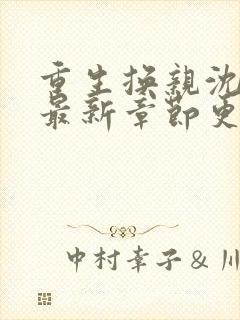 重生换亲沈
最新章节更
中村幸子 & 川